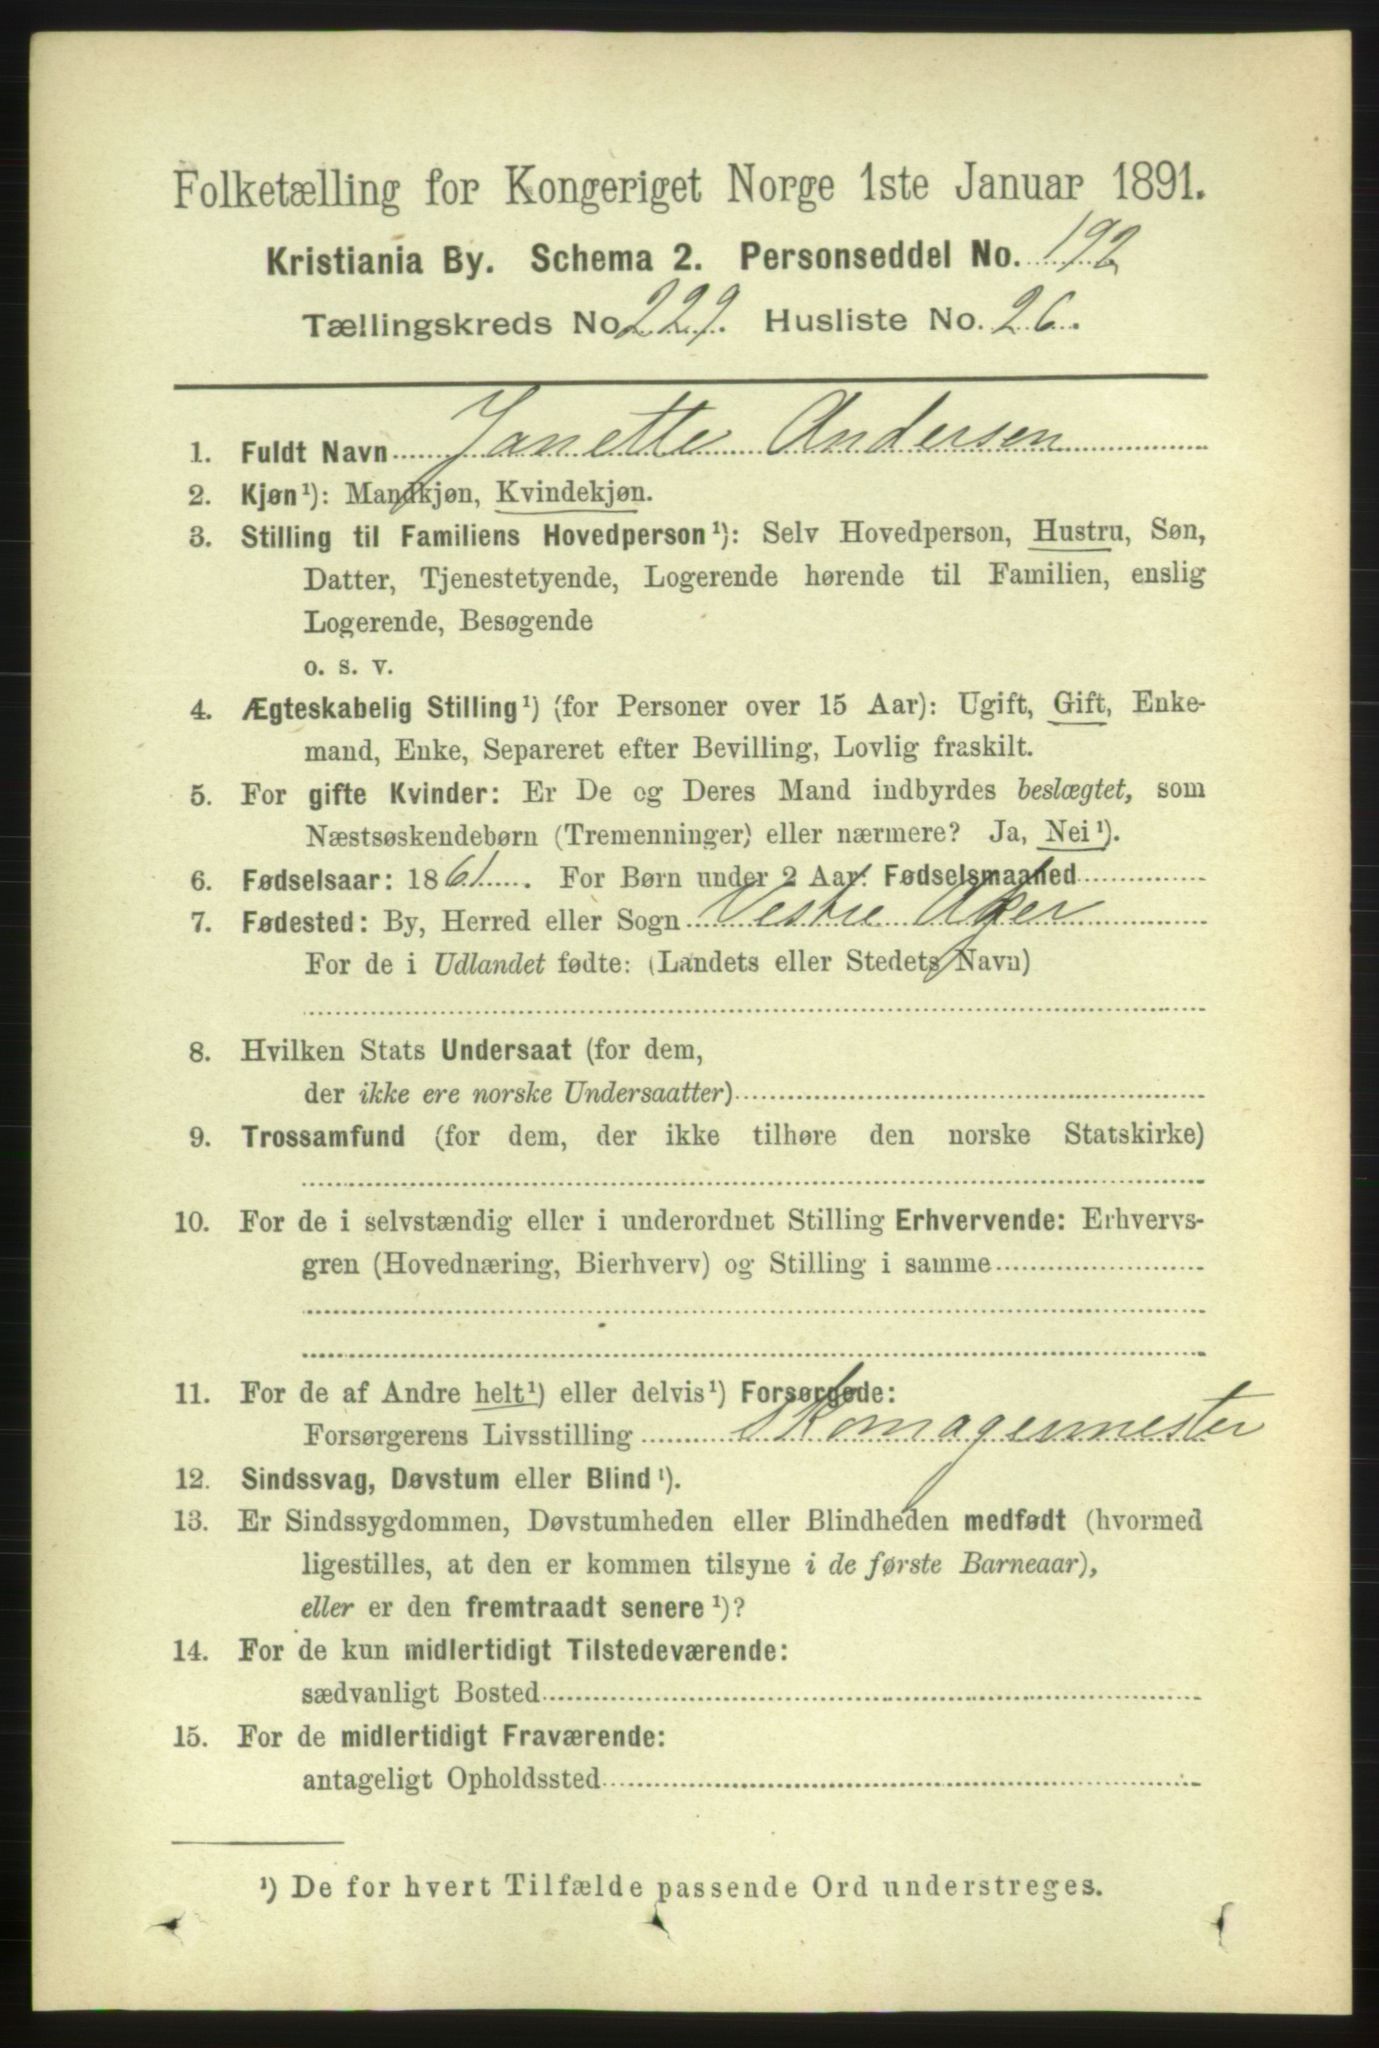 Folketælling for Kongeriget Norge 1ste Januar 1891.
Kristiania By. Schema 2. Personseddel No. 192
Tællingskreds No 229. Husliste No. 26.
1. Fuldt Navn Janette Andersen
2. Kjøn¹): Mandkjøn, Kvindekjøn.
3. Stilling til Familiens Hovedperson¹): Selv Hovedperson, Hustru, Søn,
Datter, Tjenestetyende, Logerende hørende til Familien, enslig
Logerende, Besøgende
o. s. v.
4. Ægteskabelig Stilling¹) (for Personer over 15 Aar): Ugift, Gift, Enke-
mand, Enke, Separeret efter Bevilling, Lovlig fraskilt.
5. For gifte Kvinder: Er De og Deres Mand indbyrdes beslægtet, som
Næstsøskendebørn (Tremenninger) eller nærmere? Ja, Nei¹).
6. Fødselsaar: 1861. For Børn under 2 Aar: Fødselsmaaned
7. Fødested: By, Herred eller Sogn Vestre Aker
For de i Udlandet fødte: (Landets eller Stedets Navn)
8. Hvilken Stats Undersaat (for dem,
der ikke ere norske Undersaatter)
9. Trossamfund (for dem, der ikke tilhøre den norske Statskirke)
10. For de i selvstændig eller i underordnet Stilling Erhvervende: Erhvervs-
gren (Hovednæring, Bierhverv) og Stilling i samme
11. For de af Andre helt¹) eller delvis¹) Forsørgede:
Forsørgerens Livsstilling Skomagermester
12. Sindssvag, Døvstum eller Blind¹).
13. Er Sindssygdommen, Døvstumheden eller Blindheden medfødt (hvormed
ligestilles, at den er kommen tilsyne i de første Barneaar),
eller er den fremtraadt senere¹)?
14. For de kun midlertidigt Tilstedeværende:
sædvanligt Bosted
15. For de midlertidigt Fraværende:
antageligt Opholdssted
¹) De for hvert Tilfælde passende Ord understreges.